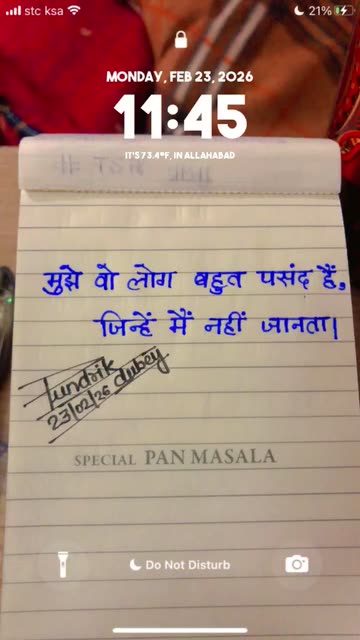 stc ksa
21%
MONDAY, FEB 23, 2026
11:45
IT'S 73.4°F, IN ALLAHABAD
मुझे वो लोग बहुत पसंद हैं,
जिन्हें मैं नहीं जानता।
Tundrik
dubey
23/02/26
SPECIAL PAN MASALA
Do Not Disturb